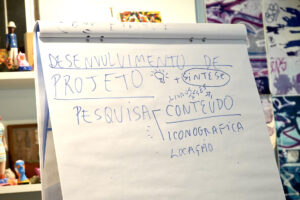 DESENVOLVIMENTO DE
PROJETO + SÍNTESE
PESQUISA CONTEÚDO
ICONOGRÁFICA
LOCAÇÃO